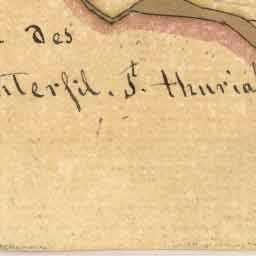 des
nterfil. St. thuria